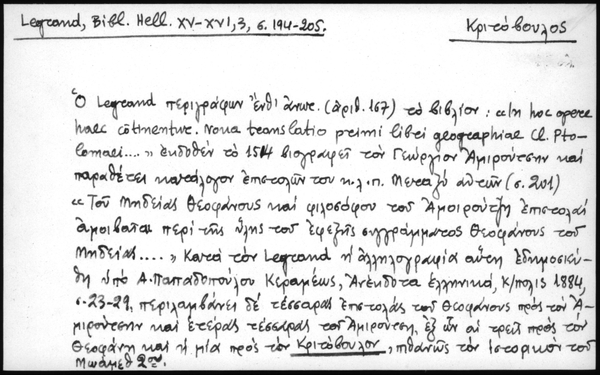 Legrand, Bibl. Hell. XV-XVI, 3, σ. 194-205.
Κριτόβουλος
Ὁ Legrand περιγράφων ἔνθ' ἀνωτ. (ἀριθ. 167) τὸ βιβλίον: «In hoc opere
haec cōtinentur. Noua translatio primi libri geographiae Cl. Pto-
lomaei....» ἐκδοθὲν τὸ 1514 βιογραφεῖ τὸν Γεώργιον Ἀμιρούτσην καὶ
παραθέτει κατάλογον ἐπιστολῶν του κ.λ.π. Μεταξὺ αὐτῶν (σ. 201)
«Τοῦ Μηδείας Θεοφάνους καὶ φιλοσόφου τοῦ Ἀμοιρούτζη ἐπιστολαὶ
ἀμοιβαῖαι περὶ τῆς ὕλης τοῦ ἐφεξῆς συγγράμματος Θεοφάνους τοῦ
Μηδείας....» Κατὰ τὸν Legrand ἡ ἀλληλογραφία αὕτη ἐδημοσιεύ-
θη ὑπὸ Α. Παπαδοπούλου Κεραμέως, Ἀνέκδοτα ἑλληνικά, Κ/πολις 1884,
σ. 23-29, περιλαμβάνει δὲ τέσσαρας ἐπιστολὰς τοῦ Θεοφάνους πρὸς τὸν Ἀ-
μιρούτσην καὶ ἑτέρας τέσσαρας τοῦ Ἀμιρούτση, ἐξ ὧν αἱ τρεῖς πρὸς τὸν
Θεοφάνη καὶ ἡ μία πρὸς τὸν Κριτόβουλον, πιθανῶς τὸν ἱστορικὸν τοῦ
Μωάμεθ 2ου.